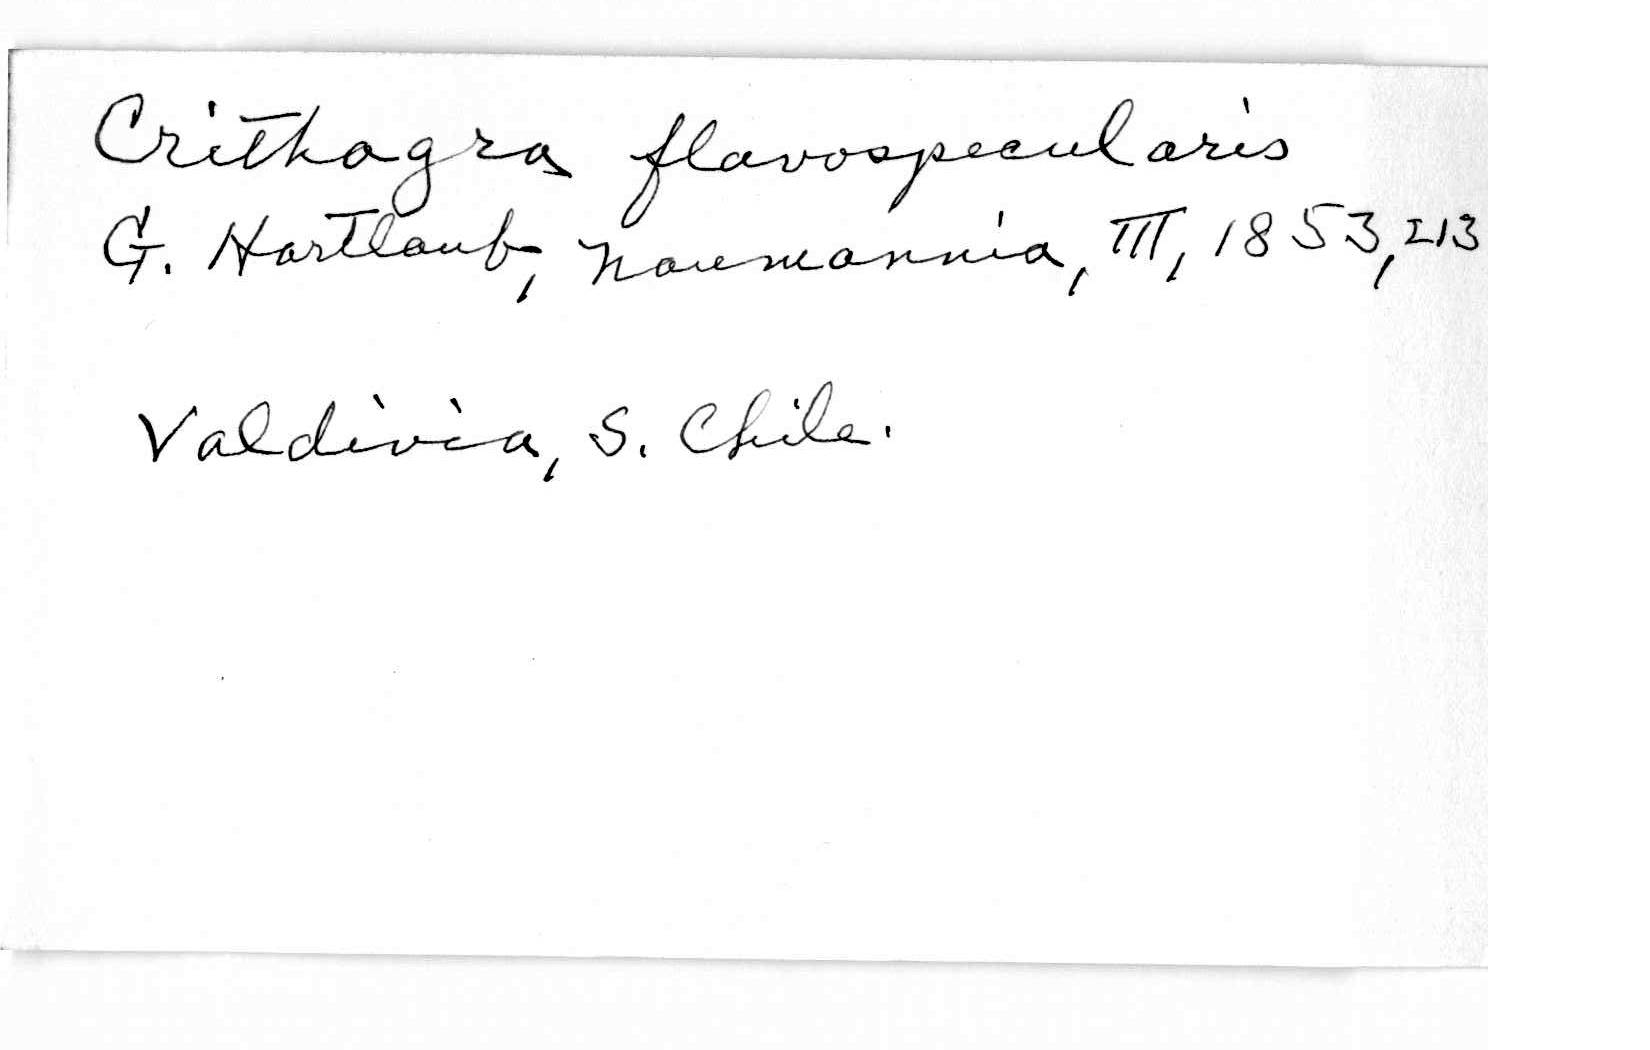 Crithagra flavospecularis
G. Hartlaub, Naumannia, III, 1853, 213
Valdivia, S. Chile.